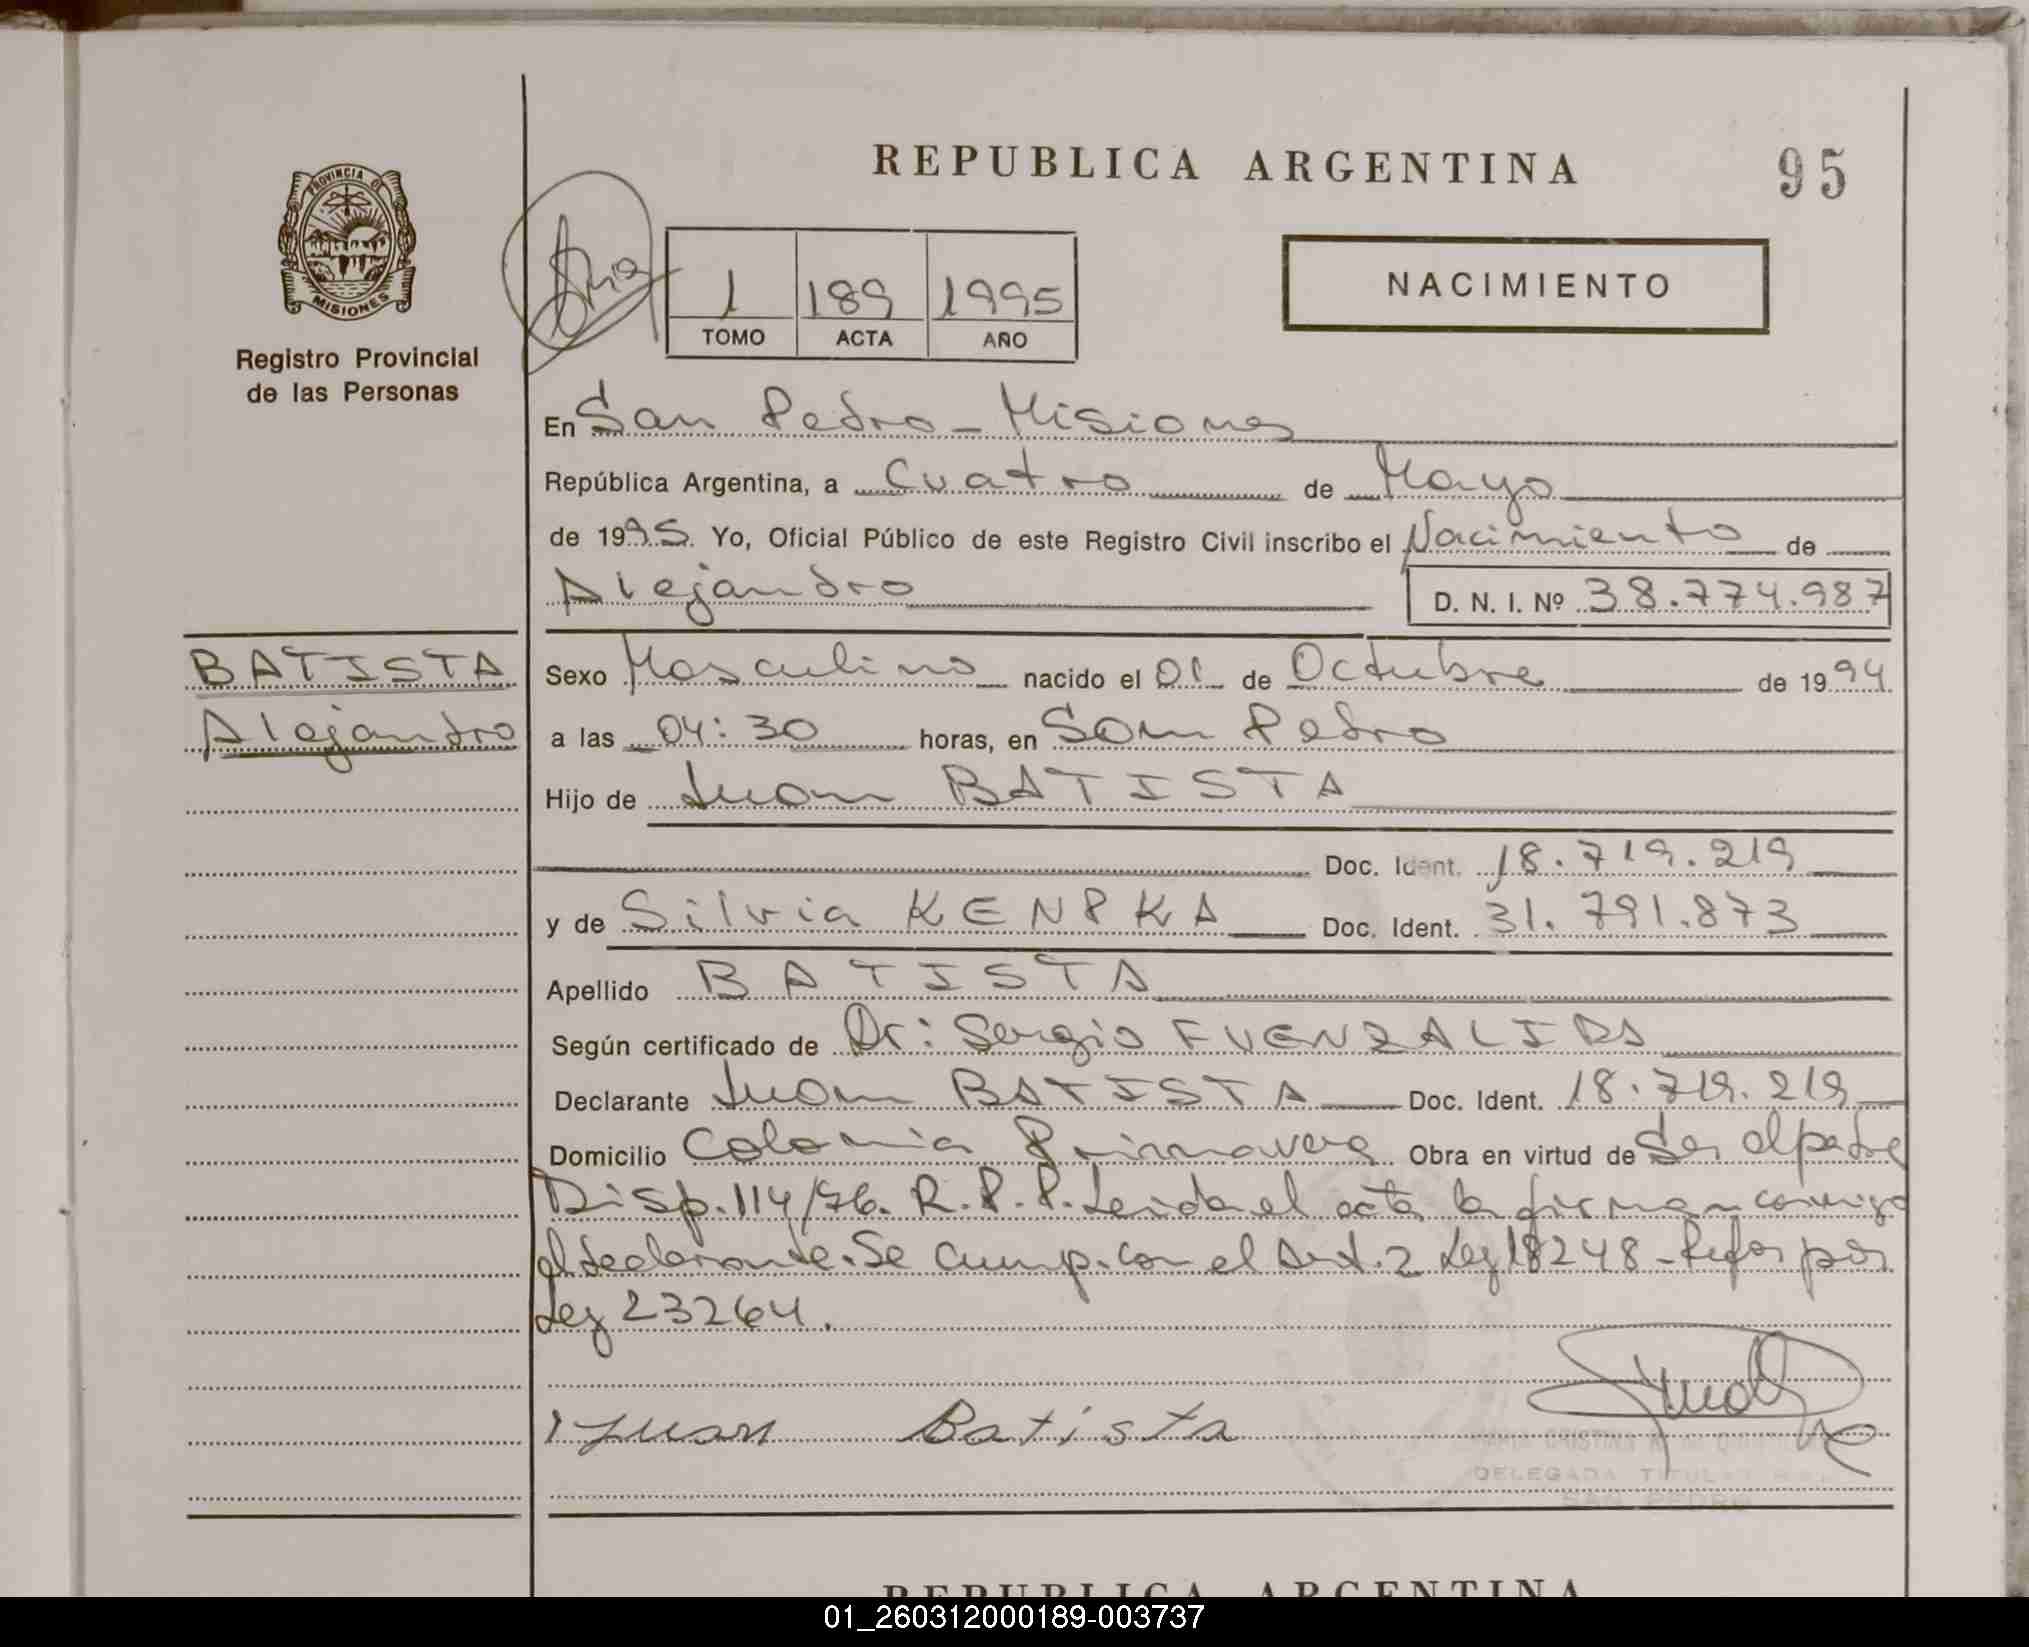 REPUBLICA ARGENTINA
95
PROVINCIA DE
MISIONES
Registro Provincial
de las Personas
1 189 1995
TOMO ACTA AÑO
NACIMIENTO
En San Pedro - Misiones
República Argentina, a Cuatro de Mayo
de 1995. Yo, Oficial Público de este Registro Civil inscribo el Nacimiento de
Alejandro D. N. I. Nº 38.774.987
BATISTA
Alejandro
Sexo Masculino nacido el 01 de Octubre de 1994
a las 04:30 horas, en San Pedro
Hijo de Juan BATISTA
Doc. Ident. 18.719.219
y de Silvia KENPKA Doc. Ident. 31.791.873
Apellido BATISTA
Según certificado de Dr: Sergio FUENZALIDA
Declarante Juan BATISTA Doc. Ident. 18.719.219
Domicilio Colonia Primavera Obra en virtud de Ser el padre
Disp. 114/76. R.P.P. Leida el acta la firman conmigo
el declarante. Se cump. con el Art. 2 Ley 18248 - Refor por
Ley 23264.
Juan Batista
DELEGADA TITULAR
SAN PEDRO
REPUBLICA ARGENTINA
01_260312000189-003737